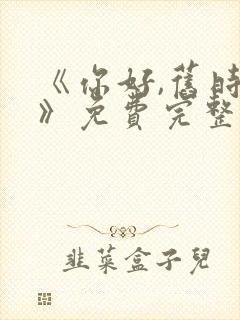 《你好,舊時
》免費完整
韭菜盒子兒